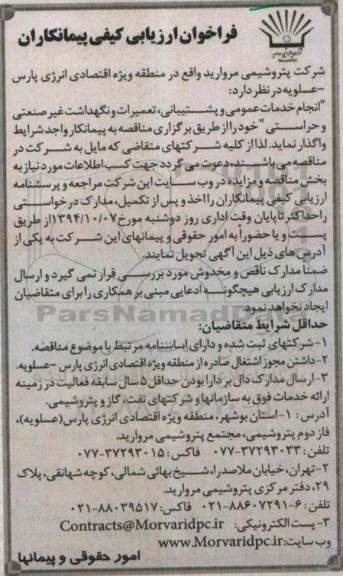 فراخوان ارزیابی کیفی پیمانکاران
شرکت پتروشیمی مروارید واقع در منطقه ویژه اقتصادی انرژی پارس
-عسلویه در نظر دارد:
"انجام خدمات عمومی و پشتیبانی، تعمیرات و نگهداشت غیر صنعتی
و حراستی " خود را از طریق برگزاری مناقصه به پیمانکار واجد شرایط
واگذار نماید. لذا از کلیه شرکتهای متقاضی که مایل به شرکت در
مناقصه می باشند، دعوت می گردد جهت کسب اطلاعات مورد نیاز به
بخش مناقصه و مزایده در وب سایت این شرکت مراجعه و پرسشنامه
ارزیابی کیفی پیمانکاران را اخذ و پس از تکمیل، مدارک درخواستی
را حداکثر تا پایان وقت اداری روز دوشنبه مورخ ۱۳۹۴/۱۰/۰۷ از طریق
پست و یا حضوراً به امور حقوقی و پیمانهای این شرکت به یکی از
آدرس های ذیل این آگهی تحویل نمایند.
ضمناً مدارک ناقص و مخدوش مورد بررسی قرار نمی گیرد و ارسال
مدارک ارزیابی هیچگونه ادعایی مبنی بر همکاری را برای متقاضیان
ایجاد نخواهد نمود.
ParsNamadData
حداقل شرایط متقاضیان:
۱-شرکتهای ثبت شده و دارای اساسنامه مرتبط با موضوع مناقصه.
۲-داشتن مجوز اشتغال صادره از منطقه ویژه اقتصادی انرژی پارس -عسلویه.
۳-ارسال مدارک دال بر دارا بودن حداقل ۵ سال سابقه فعالیت در زمینه
ارائه خدمات فوق به سازمانها و شرکتهای نفت، گاز و پتروشیمی.
آدرس : ۱-استان بوشهر، منطقه ویژه اقتصادی انرژی پارس (عسلویه)،
فاز دوم پتروشیمی، مجتمع پتروشیمی مروارید.
تلفن: ۳۷۲۹۳۰۳۳-۰۷۷ فاکس: ۳۷۲۹۳۰۱۵-۰۷۷
۲-تهران، خیابان ملاصدرا، شیخ بهائی شمالی، کوچه شهانقی، پلاک
۲۹، دفتر مرکزی پتروشیمی مروارید.
تلفن: ۶-۸۸۶۰۷۲۹۱-۰۲۱ فاکس: ۸۸۰۳۹۵۱۷-۰۲۱
۳- پست الکترونیکی: Contracts@Morvaridpc.ir
وب سایت: www.Morvaridpc.ir
امور حقوقی و پیمانها